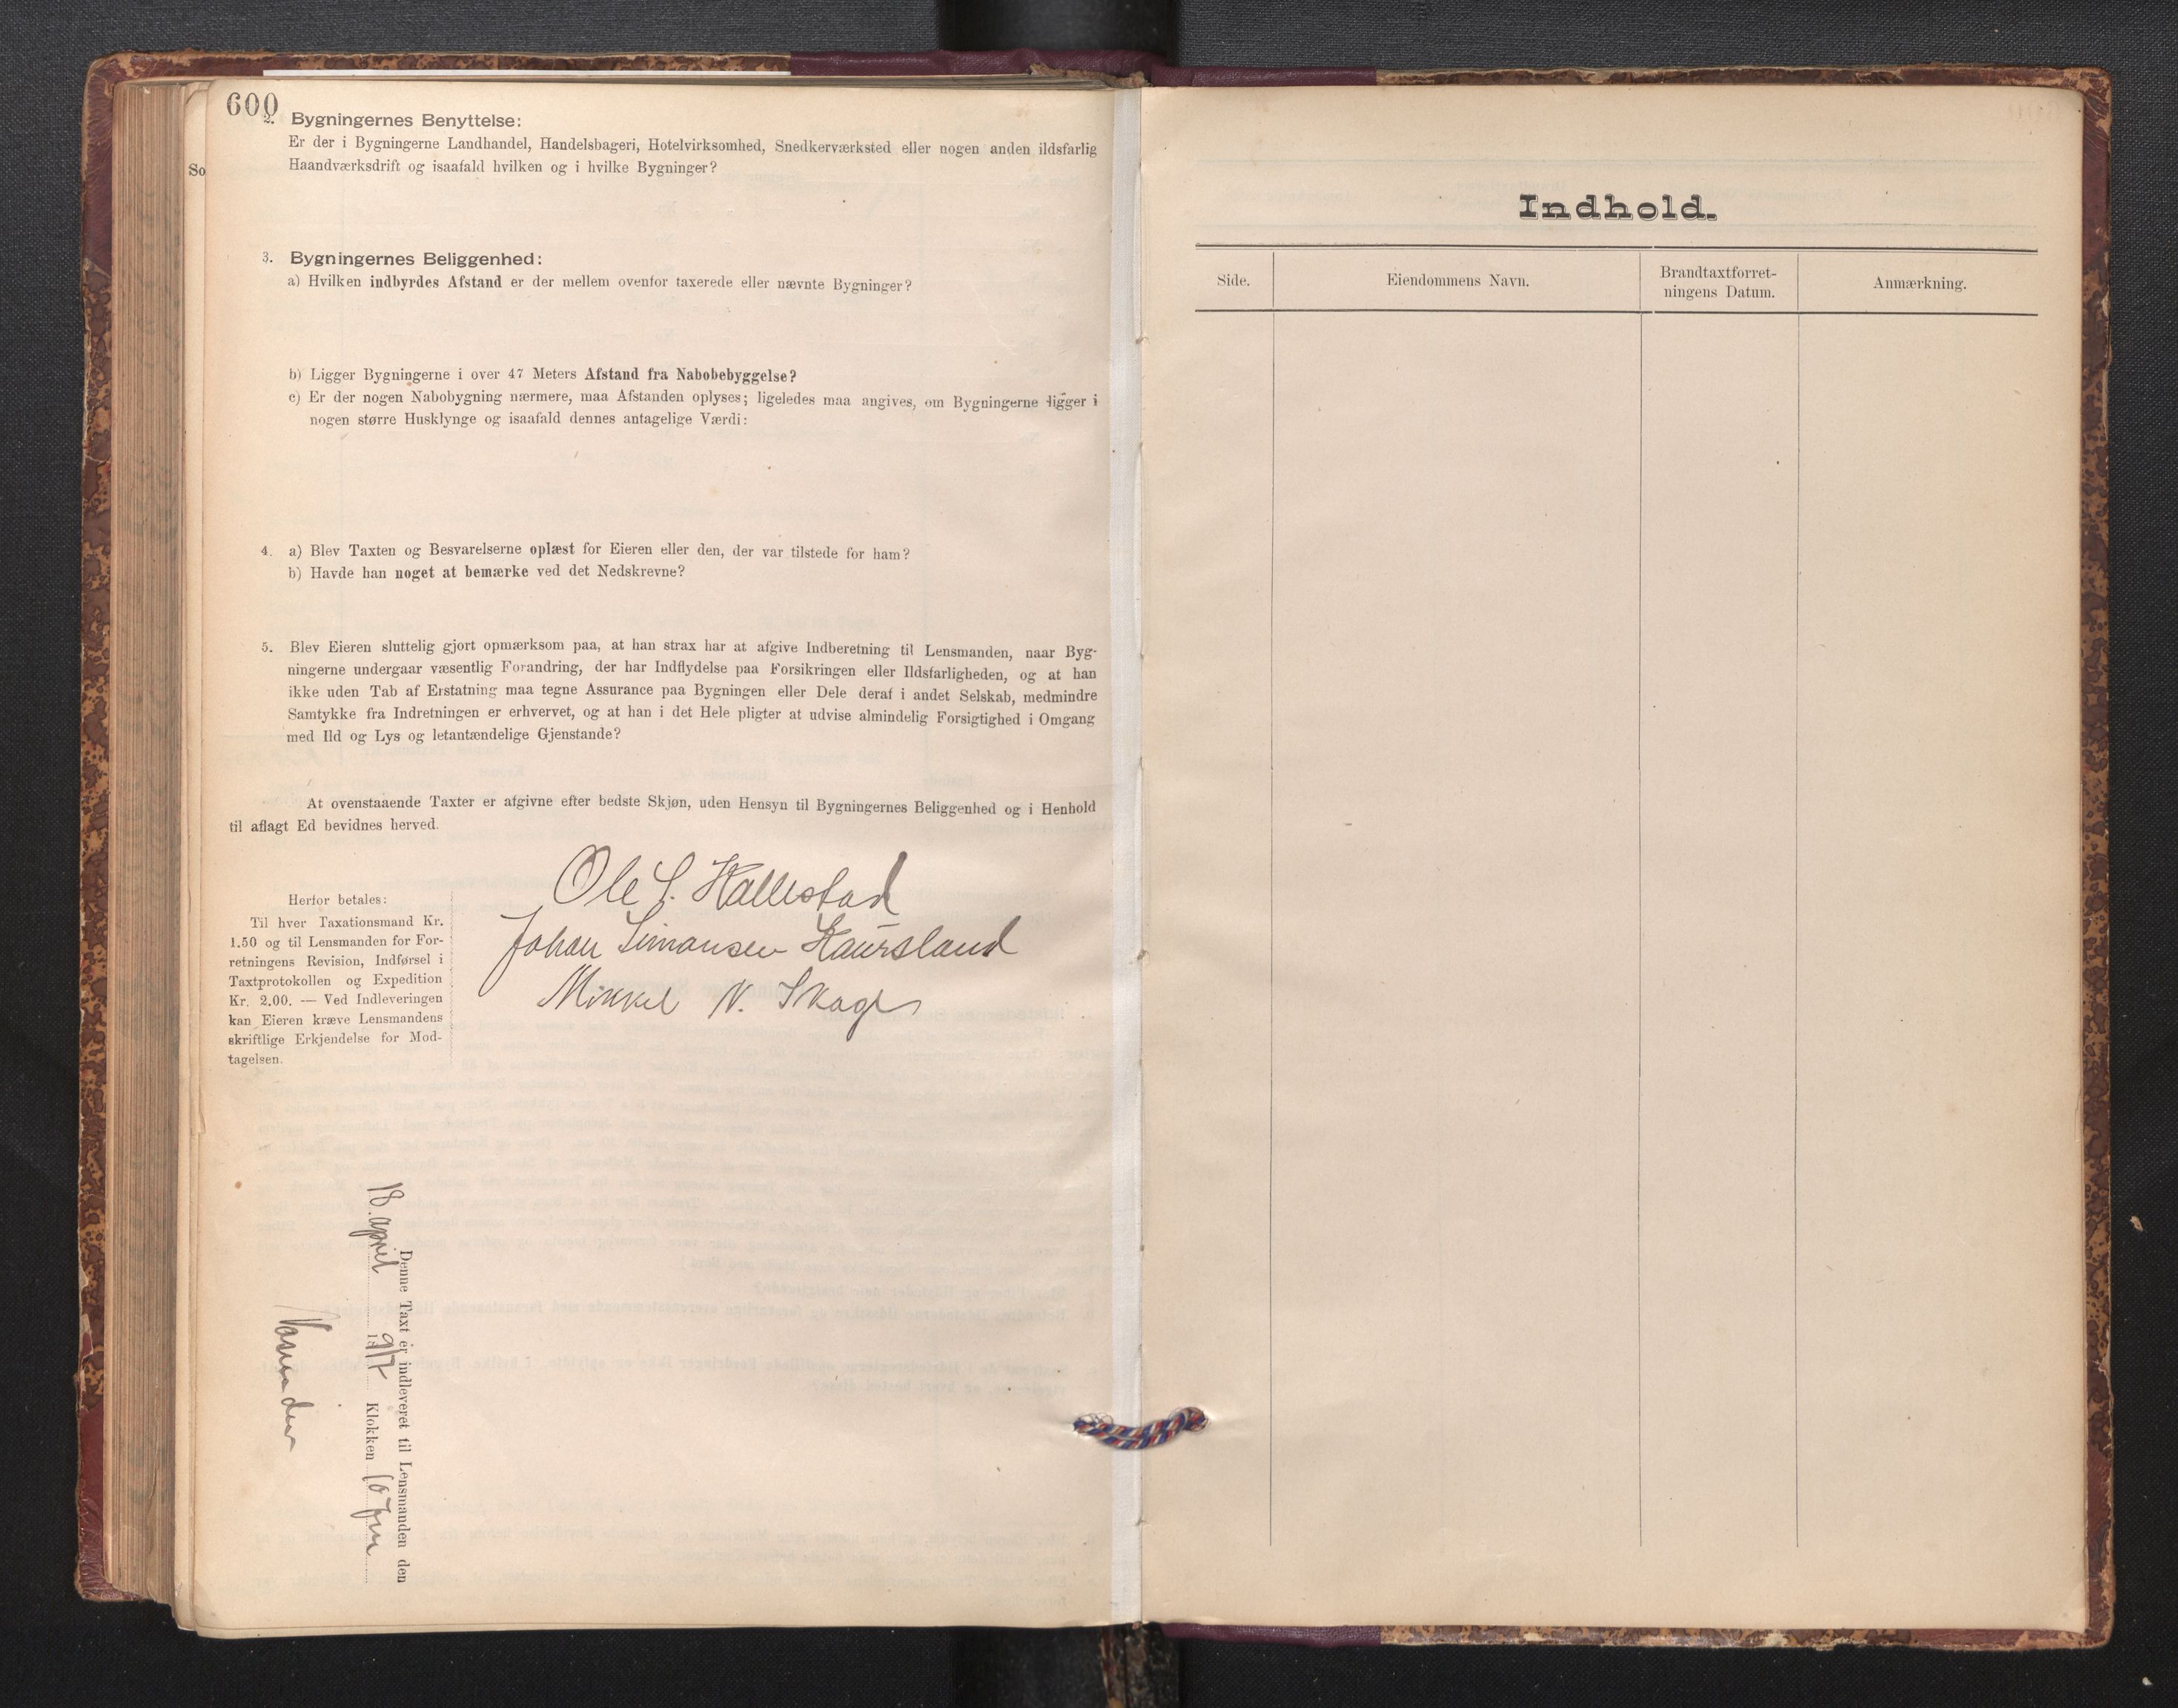 600
So
2. Bygningernes Benyttelse:
Er der i Bygningerne Landhandel, Handelsbageri, Hotelvirksomhed, Snedkerværksted eller nogen anden ildsfarlig
Haandværksdrift og isaafald hvilken og i hvilke Bygninger?
3. Bygningernes Beliggenhed:
a) Hvilken indbyrdes Afstand er der mellem ovenfor taxerede eller nævnte Bygninger?
b) Ligger Bygningerne i over 47 Meters Afstand fra Nabobebyggelse?
c) Er der nogen Nabobygning nærmere, maa Afstanden oplyses; ligeledes maa angives, om Bygningerne ligger i
nogen større Husklynge og isaafald dennes antagelige Værdi:
4. a) Blev Taxten og Besvarelserne oplæst for Eieren eller den, der var tilstede for ham?
b) Havde han noget at bemærke ved det Nedskrevne?
5. Blev Eieren sluttelig gjort opmærksom paa, at han strax har at afgive Indberetning til Lensmanden, naar Byg-
ningerne undergaar væsentlig Forandring, der har Indflydelse paa Forsikringen eller Ildsfarligheden, og at han
ikke uden Tab af Erstatning maa tegne Assurance paa Bygningen eller Dele deraf i andet Selskab, medmindre
Samtykke fra Indretningen er erhvervet, og at han i det Hele pligter at udvise almindelig Forsigtighed i Omgang
med Ild og Lys og letantændelige Gjenstande?
At ovenstaaende Taxter er afgivne efter bedste Skjøn, uden Hensyn til Bygningernes Beliggenhed og i Henhold
til aflagt Ed bevidnes herved.
Ole S. Hallestad
Johan Simonsen Haursland
Mikkel N. Skage
Herfor betales:
Til hver Taxationsmand Kr.
1.50 og til Lensmanden for For-
retningens Revision, Indførsel i
Taxtprotokollen og Expedition
Kr. 2.00. — Ved Indleveringen
kan Eieren kræve Lensmandens
skriftlige Erkjendelse for Mod-
tagelsen.
Denne Taxt er indleveret til Lensmanden den
18. april 1917 Klokken 10 fm
Indhold.
Side.
Eiendommens Navn.
Brandtaxtforret-
ningens Datum.
Anmærkning.